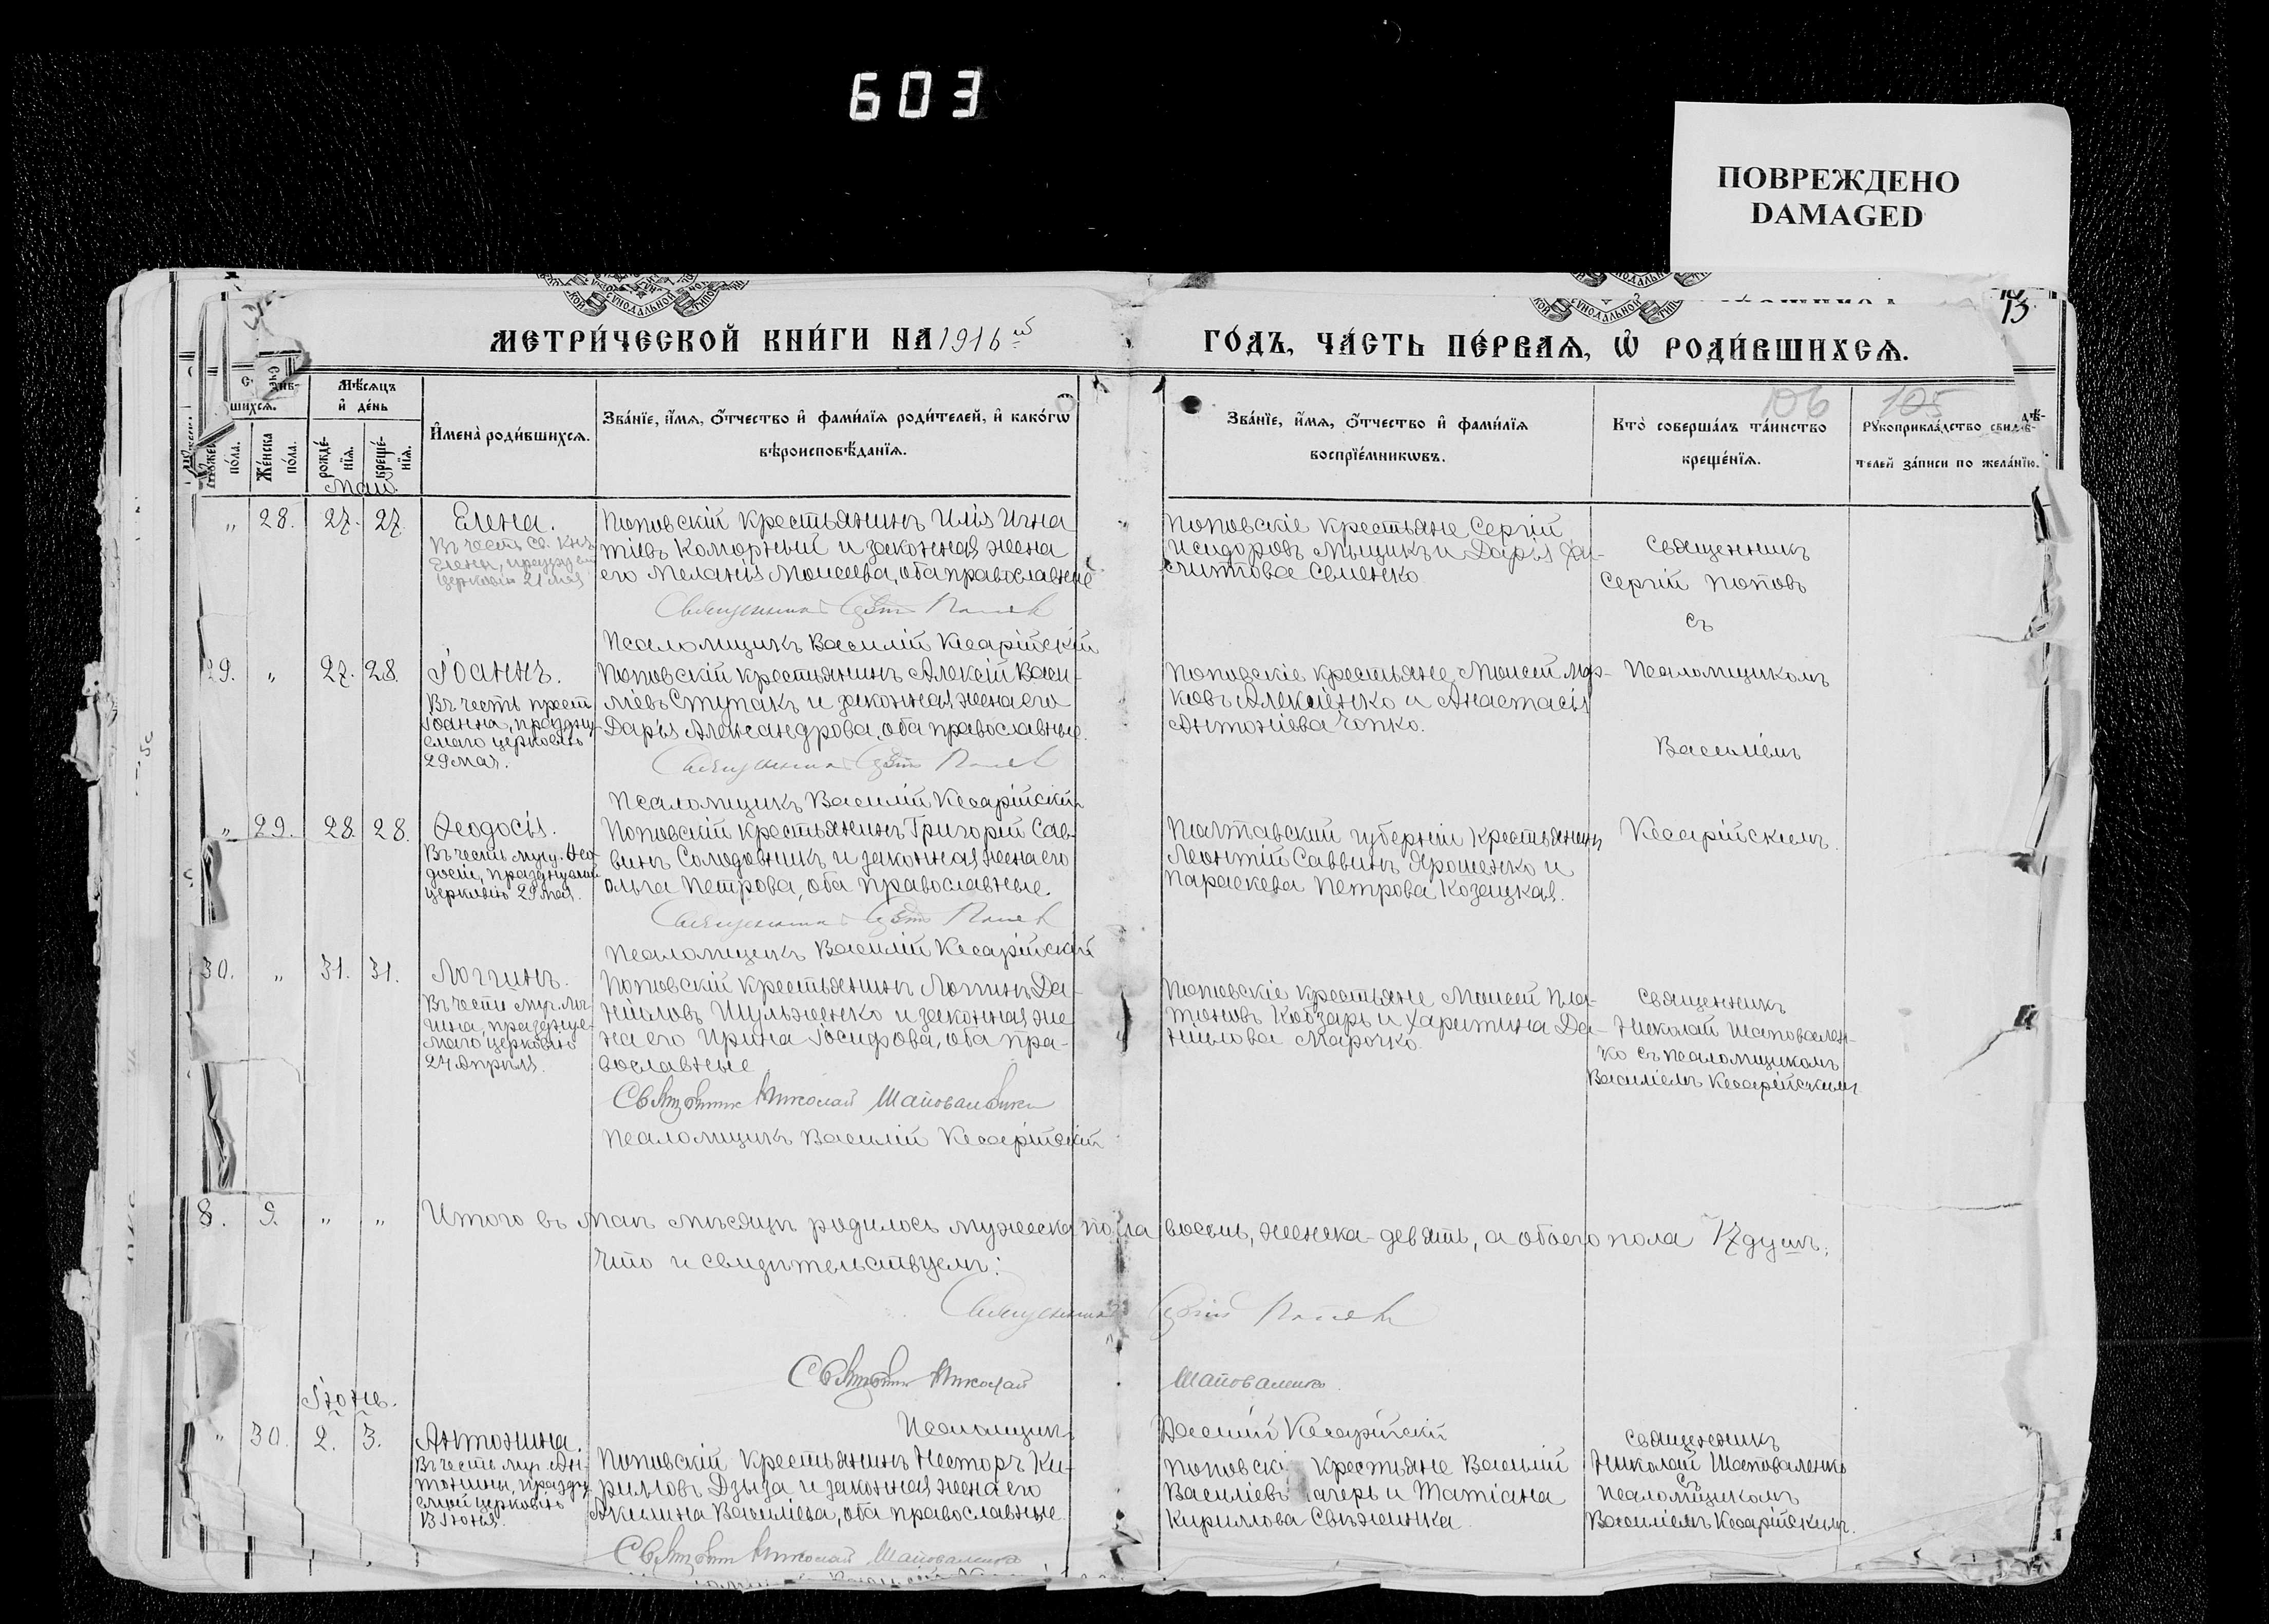 603
ПОВРЕЖДЕНО
DAMAGED
МЕТРИ́ЧЕСКОЙ КНИ́ГИ НА 1916 й
ГО́ДЪ, ЧА́СТЬ ПЕ́РВАЯ, Ѿ РОДИ́ВШИХСЯ.
13
106 105
шихся.
Мѣ́сяцъ и де́нь
по́ла.
Же́нска по́ла.
рожде́нїя.
креще́нїя.
Имена̀ роди́вшихся.
Зва́нїе, и́мя, о́тчество и фами́лїя роди́телей, и како́гѡ
вѣроисповѣ́данїя.
Зва́нїе, и́мя, о́тчество и фами́лїя
воспрїе́мникѡвъ.
Кто̀ соверша́лъ та́инство
креще́нїя.
Рꙋкоприкла́дство свидѣ-
телей за́писи по жела́нїю.
Май.
„ 28. 27. 27.
Елена.
Въ честь св.
Елены,
церковью 21 мая
Поповскій крестьянинъ Илія Игна
тіевъ Коморный и законная жена
его Меланія Моисеева, оба православные
Священникъ Сергій Поповъ
Псаломщикъ Василій Кесарійскій
Поповскіе крестьяне Сергій
Исидоровъ Мыцикъ и Дарія
Семенко
Священникъ
Сергій Поповъ
съ
29. „ 27. 28.
Іоаннъ.
Въ честь преп
Іоанна, праздну
емаго церковью
29 мая.
Поповскій крестьянинъ Алексій Васи-
ліевъ Ступакъ и законная жена его
Дарія Александрова, оба православные.
Священникъ Сергій Поповъ
Псаломщикъ Василій Кесарійскій
Поповскіе крестьяне Моисей Мар-
ковъ Алексіенко и Анастасія
Антоніева Чопко.
Псаломщикомъ
Василіемъ
„ 29. 28. 28.
Ѳеодосія.
Въ честь муч. Ѳео
досіи, празднуемой
церковью 29 мая.
Поповскій крестьянинъ Григорій Сав-
винъ Солодовникъ и законная жена его
Ольга Петрова, оба православные.
Священникъ Сергій Поповъ
Псаломщикъ Василій Кесарійскій
Полтавской губерніи крестьянинъ
Леонтій Саввинъ Ярошенко и
Параскева Петрова Козацкая.
Кесарійскимъ.
30. „ 31. 31.
Логгинъ.
Въ честь муч. Лог
гина, праздуе-
маго церковью
24 Апрѣля.
Поповскій крестьянинъ Логгинъ Да-
ніиловъ Шульженко и законная же
на его Ирина Іосифова, оба пра-
вославные
Священникъ Николай Шаповаленко
Псаломщикъ Василій Кесарійскій
Поповскіе крестьяне Моисей Пла-
тоновъ Кобзарь и Харитина Да-
ніилова Марочко.
Священникъ
Николай Шаповален-
ко съ псаломщикомъ
Василіемъ Кесарійскимъ
8. 9. „ „
Итого въ маѣ мѣсяцѣ родилось мужеска пола восемь, женска-девять, а обоего пола 17 душъ;
что и свидѣтельствуемъ:
Священникъ Сергій Поповъ
Священникъ Николай Шаповаленко
Псаломщикъ Василій Кесарійскій
Іюнь.
„ 30. 2. 3.
Антонина.
Въ честь муч. Ан-
тонины, праздну
емой церковью
Поповскій крестьянинъ Несторъ Ки-
рилловъ Дзыза и законная жена его
Акилина Василіева, оба православные.
Священникъ Николай Шаповаленко
крестьяне Василій
Василіевъ и Татіана
Кириллова Свѣженка
Священникъ
Николай Шаповаленко
съ
псаломщикомъ
Василіемъ Кесарійскимъ.